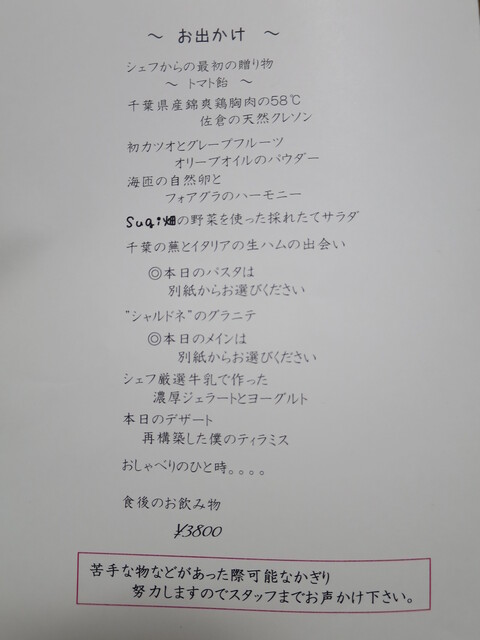 ～ お出かけ ～
シェフからの最初の贈り物
～ トマト飴 ～
千葉県産錦爽鶏胸肉の58℃
佐倉の天然クレソン
初カツオとグレープフルーツ
オリーブオイルのパウダー
海匝の自然卵と
フォアグラのハーモニー
Sugi畑の野菜を使った採れたてサラダ
千葉の蕪とイタリアの生ハムの出会い
◎本日のパスタは
別紙からお選びください
"シャルドネ"のグラニテ
◎本日のメインは
別紙からお選びください
シェフ厳選牛乳で作った
濃厚ジェラートとヨーグルト
本日のデザート
再構築した僕のティラミス
おしゃべりのひと時。。。。
食後のお飲み物
¥3800
苦手な物などがあった際可能なかぎり
努力しますのでスタッフまでお声かけ下さい。